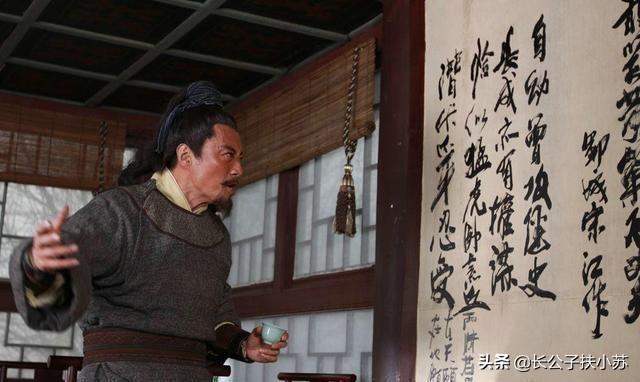 鄆城宋江作
自幼曾攻經史
長成亦有權謀
恰似猛虎卧荒丘
潛伏爪牙忍受
头条 @长公子扶小苏